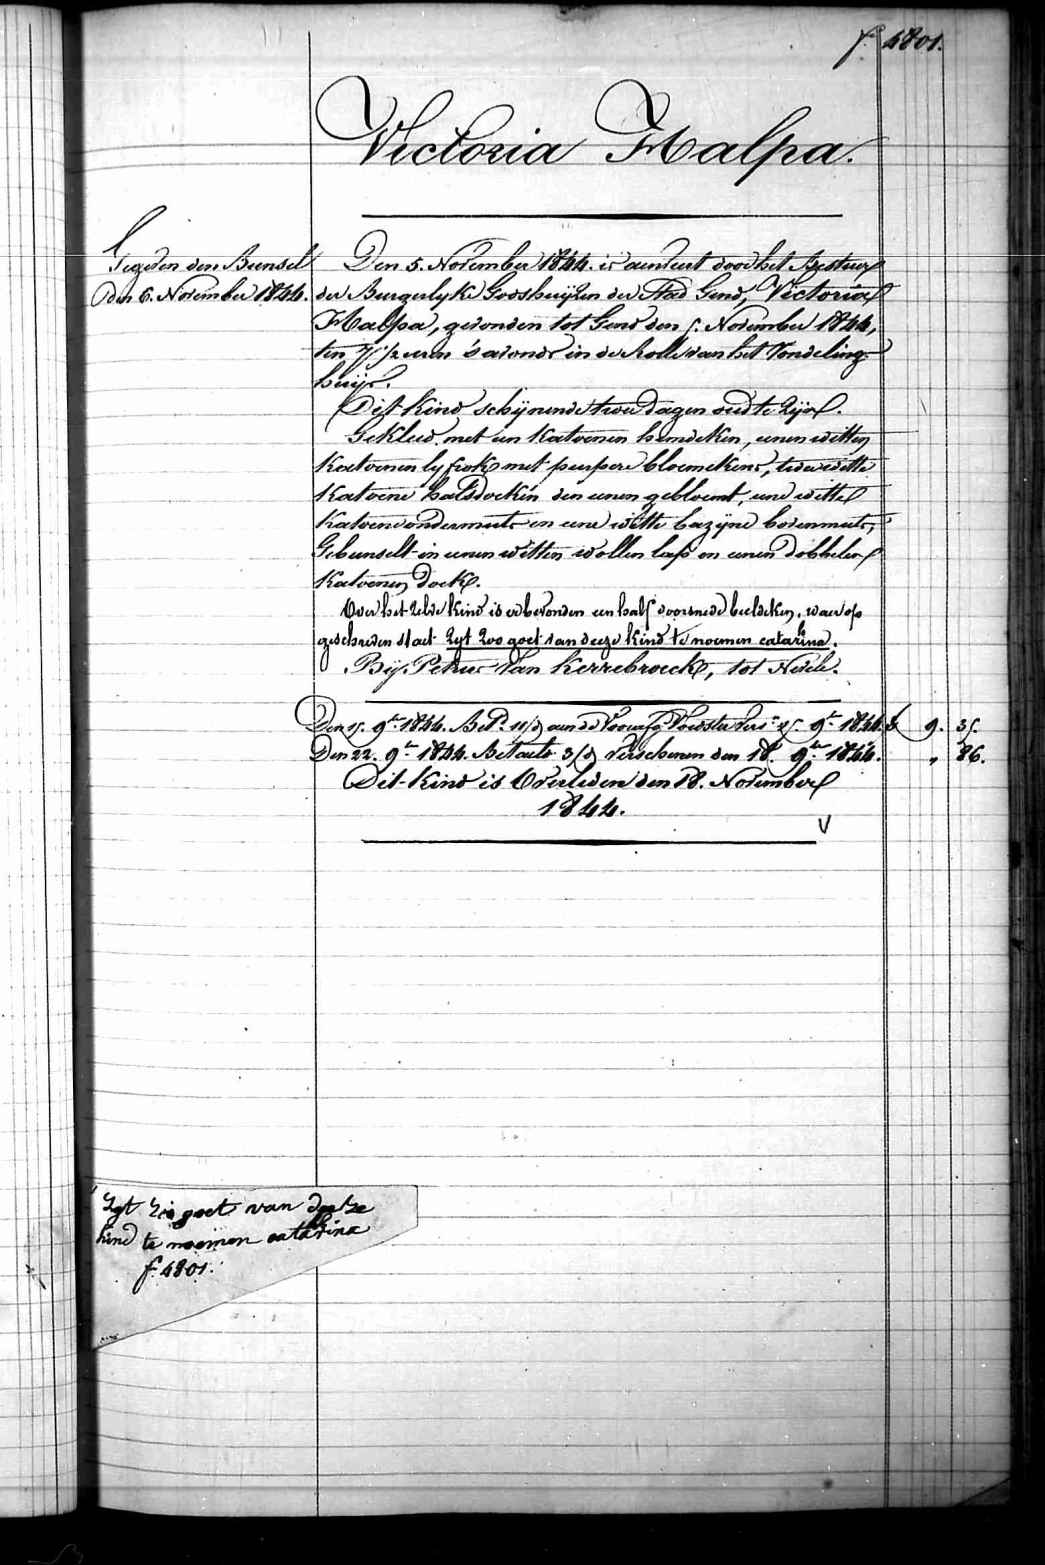 f° 4801.
Victoria Halpa.
Gegeven den Bunsel
den 6. November 1844.
Den 5. November 1844. is aenveert door het Bestuur
der Burgerlyke Godshuijzen der Stad Gend, Victoria
Halpa, gevonden tot Gend den 5. November 1844,
ten 7 1/2 uren 's avonds in de Rolle van het Vondeling-
huijs.
Dit kind schynende twee dagen oud te zijn.
Gekleed met een katoenen hemdeken, eenen witten
katoenen lyfrok met purpere bloemekens, twee witte
katoene halsdoekén den eenen gebloemt, eene witte
katoene ondermuts en eene witte bazijne bovenmuts,
Gebunselt in eenen witten wollen lap en eenen dobbelen
katoenen doek.
Over het zelve kind is er bevonden een half doorsnede beeldeken, waer op
geschreven staet zyt zoo goet van deeze kind te noemen catarina.
Bij Petrus Van Kerrebroeck, tot Nevele.
Den 15. 9br 1844. Betd. aen de Voedster 25. 9br 1844. f 9. 35.
Den 22. 9br 1844. Betaelt 3/ Verschenen den 18. 9br 1844. " 86.
Dit kind is Overleden den 18. November
1844.
V
zyt zoo goet van deeze
kind te noemen catarina
f° 4801.